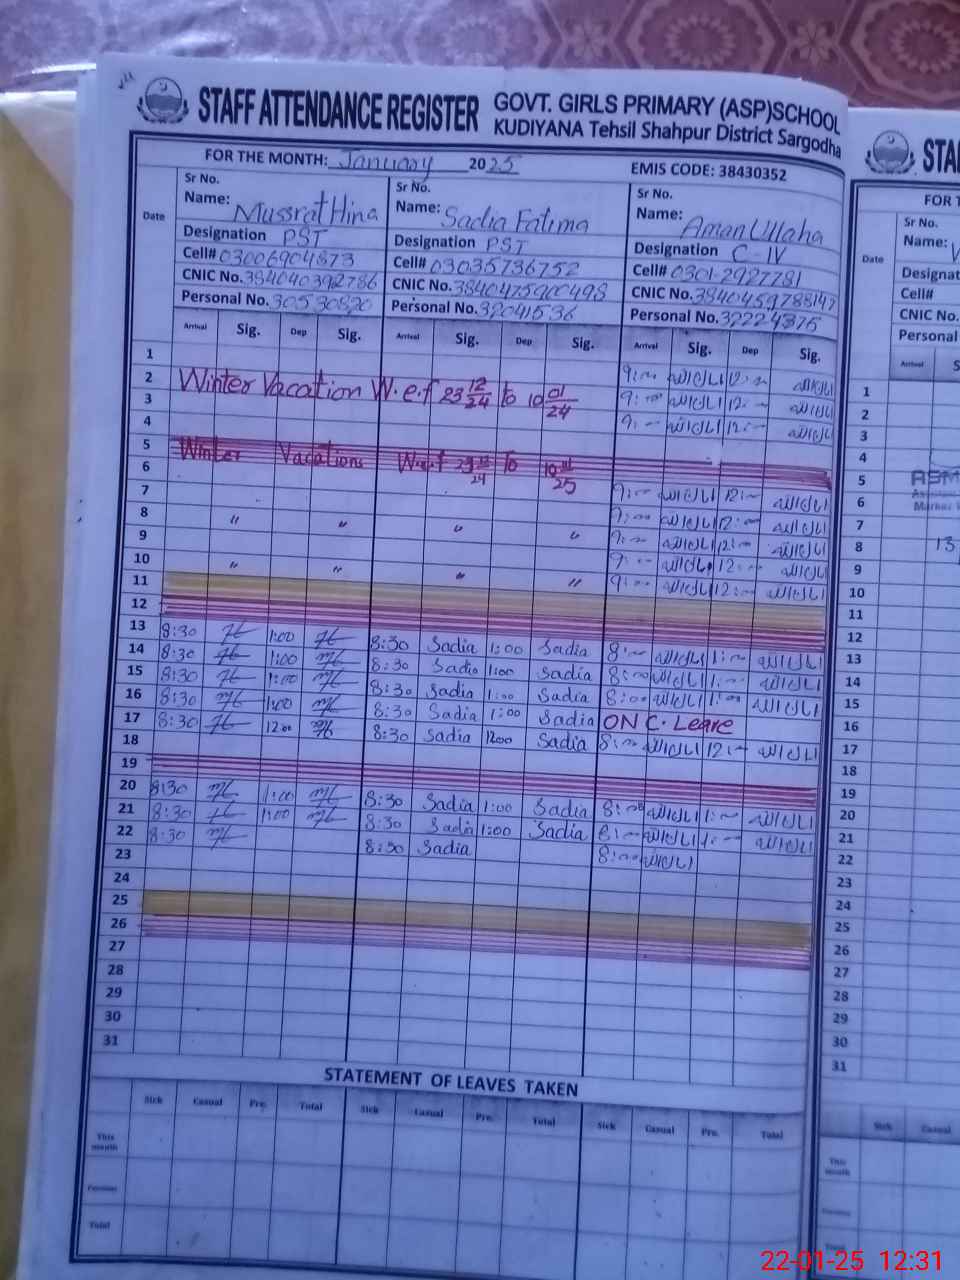 STAFF ATTENDANCE REGISTER
GOVT. GIRLS PRIMARY (ASP)SCHOOL
KUDIYANA Tehsil Shahpur District Sargodha
FOR THE MONTH: January 2025 EMIS CODE: 38430352
Date
Sr No.
Name: Mussrat Hina
Designation PST
Cell# 03006904873
CNIC No. 384040392786
Personal No. 30530820
Sr No.
Name: Sadia Fatima
Designation PST
Cell# 03035736752
CNIC No. 3840475900498
Personal No. 32041536
Sr No.
Name: Aman Ullaha
Designation C-IV
Cell# 0301-2927781
CNIC No. 3840459788147
Personal No. 32224375
Arrival Sig. Dep Sig. Arrival Sig. Dep Sig. Arrival Sig. Dep Sig.
1
2 Winter Vacation W.e.f 23 12/24 to 10 01/24 9:00 امان اللہ 12:00 امان اللہ
3 9:00 امان اللہ 12:00 امان اللہ
4 9:00 امان اللہ 12:00 امان اللہ
5 Winter Vacations W.e.f To
6
7 9:00 امان اللہ 12:00 امان اللہ
8 " " " " 9:00 امان اللہ 12:00 امان اللہ
9 9:00 امان اللہ 12:00 امان اللہ
10 " " " " 9:00 امان اللہ 12:00 امان اللہ
11 9:00 امان اللہ 12:00 امان اللہ
12
13 8:30 1:00 8:30 Sadia 1:00 Sadia 8:00 امان اللہ 1:00 امان اللہ
14 8:30 1:00 8:30 Sadia 1:00 Sadia 8:00 امان اللہ 1:00 امان اللہ
15 8:30 1:00 8:30 Sadia 1:00 Sadia 8:00 امان اللہ 1:00 امان اللہ
16 8:30 1:00 8:30 Sadia 1:00 Sadia ON C. Leave
17 8:30 12:00 8:30 Sadia 1200 Sadia 8:00 امان اللہ 12:00 امان اللہ
18
19
20 8:30 1:00 8:30 Sadia 1:00 Sadia 8:00 امان اللہ 1:00 امان اللہ
21 8:30 1:00 8:30 Sadia 1:00 Sadia 8:00 امان اللہ 1:00 امان اللہ
22 8:30 8:30 Sadia 8:00 امان اللہ
23
24
25
26
27
28
29
30
31
STATEMENT OF LEAVES TAKEN
Sick Casual Pre. Total Sick Casual Pre. Total Sick Casual Pre. Total
This month
Previous
Total
STA
FOR T
Date
Sr No.
Name:
Designat
Cell#
CNIC No.
Personal
Arrival S
1
2
3
4
5
6
7
8 13
9
10
11
12
13
14
15
16
17
18
19
20
21
22
23
24
25
26
27
28
29
30
31
Sick Casual
This month
Total
22-01-25 12:31